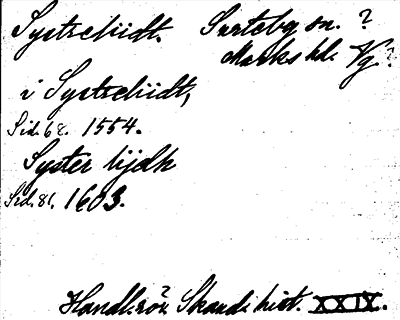 Systreliidt. Svartebg sn. ?
Marks hd. Vg?
i Systreliidt,
Sid. 68. 1554.
Syster lijdh
Sid. 81. 1603.
Handl. rör. Skand. hist. XXIX.